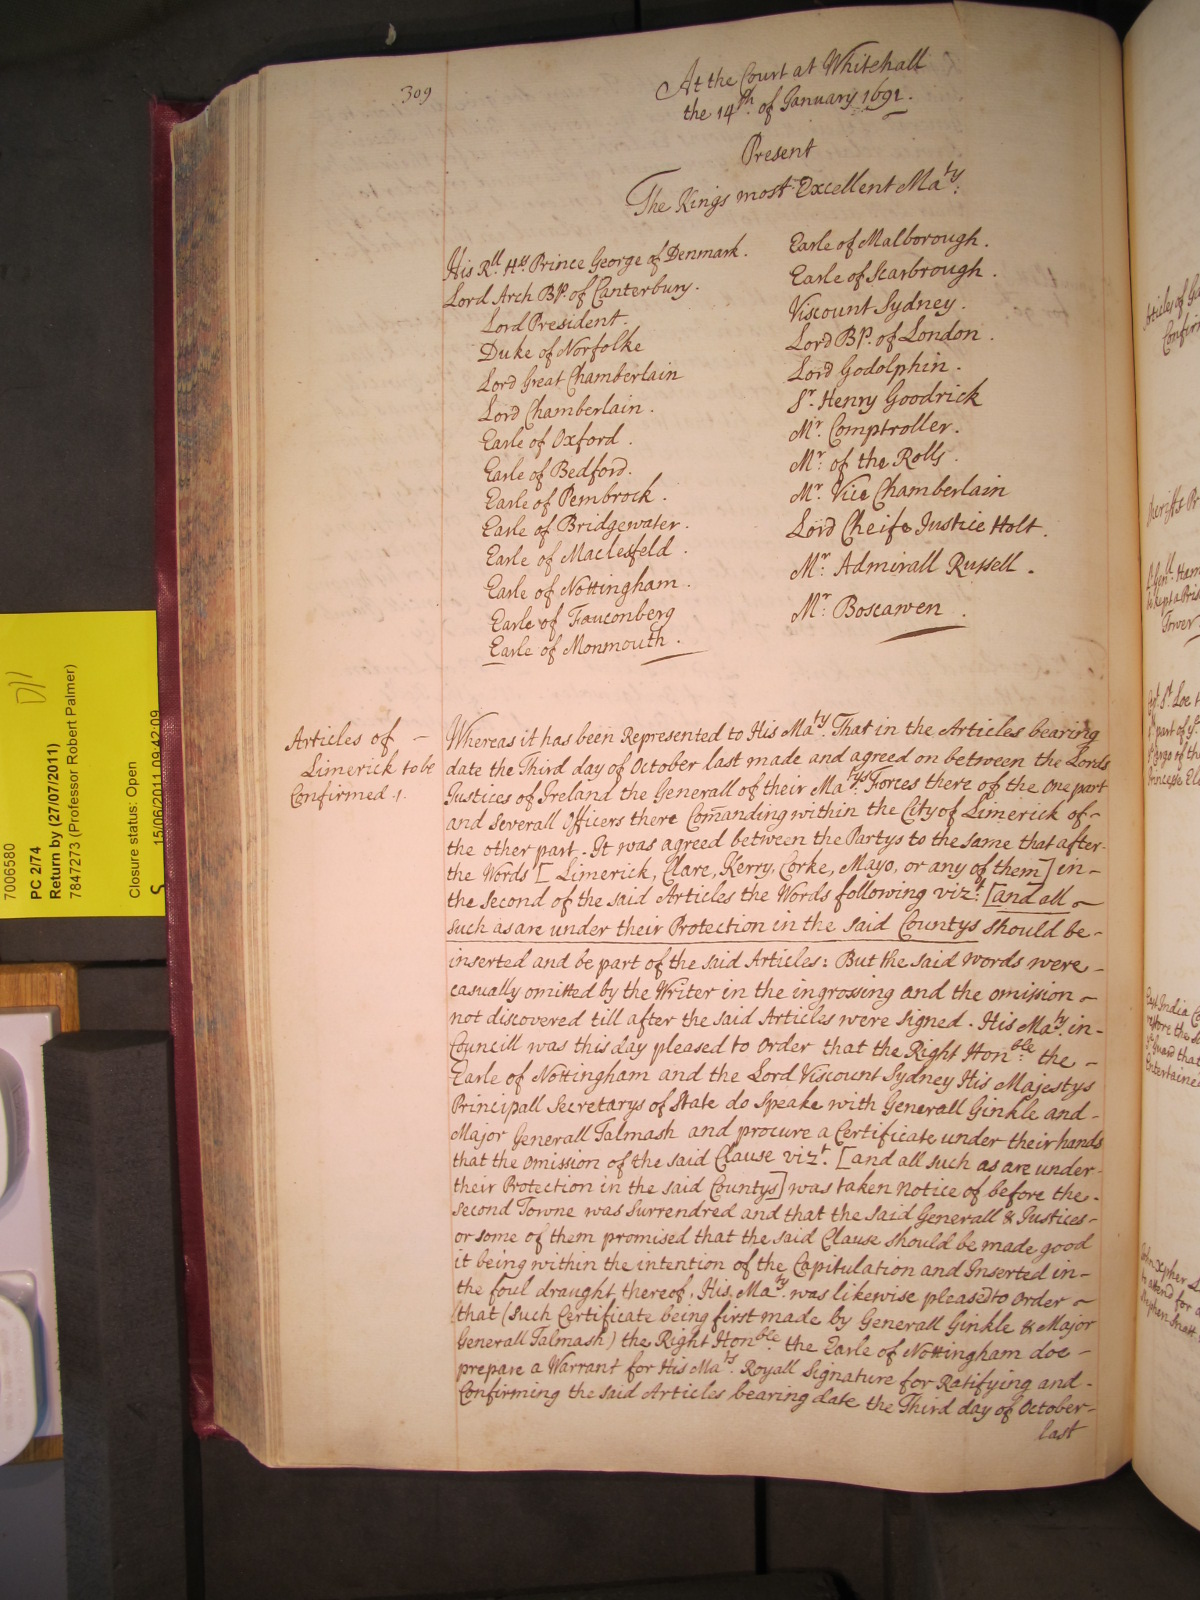 309
At the Court at Whitehall
the 14th. of January 1691.
Present
The Kings most Excellent Maty.
His Rll. Hs. Prince George of Denmark.
Lord Arch BP. of Canterbury.
Lord President.
Duke of Norfolke
Lord Great Chamberlain
Lord Chamberlain.
Earle of Oxford.
Earle of Bedford.
Earle of Pembrock.
Earle of Bridgewater.
Earle of Maclesfeld.
Earle of Nottingham.
Earle of Fauconberg
Earle of Monmouth.
Earle of Malborough.
Earle of Scarbrough.
Viscount Sydney.
Lord BP. of London.
Lord Godolphin.
Sr. Henry Goodrick
Mr. Comptroller.
Mr. of the Rolls.
Mr. Vice Chamberlain
Lord Cheife Justice Holt.
Mr. Admirall Russell.
Mr. Boscawen.
Articles of –
Limerick to be
Confirmed.
Whereas it has been Represented to His Maty. That in the Articles bearing
date the Third day of October last made and agreed on between the Lords
Justices of Ireland the Generall of their Matys. Forces there of the one part
and severall Officers there Com̄anding within the City of Limerick of –
the other part. It was agreed between the Partys to the same that after
the Words [Limerick, Clare, Kerry, Corke, Mayo, or any of them] in –
the second of the said Articles the Words following vizt. [and all –
such as are under their Protection in the said Countys should be –
inserted and be part of the said Articles: But the said words were –
casually omitted by the Writer in the ingrossing and the omission –
not discovered till after the said Articles were signed. His Maty. in –
Councill was this day pleased to Order that the Right Honble. the –
Earle of Nottingham and the Lord Viscount Sydney His Majestys
Principall Secretarys of State do Speake with Generall Ginkle and –
Major Generall Talmash and procure a Certificate under their hands
that the omission of the said Clause vizt. [and all such as are under
their Protection in the said Countys] was taken Notice of before the –
second Towne was Surrendred and that the said Generall & Justices –
or some of them promised that the said Clause should be made good
it being within the intention of the Capitulation and Inserted in –
the foul draught thereof. His Maty. was likewise pleased to Order –
that (such Certificate being first made by Generall Ginkle & Major
Generall Talmash) the Right Honble. the Earle of Nottingham doe –
prepare a Warrant for His Mats. Royall Signature for Ratifying and –
Confirming the said Articles bearing date the Third day of October –
last
7006580
PC 2/74
Return by (27/07/2011)
7847273 (Professor Robert Palmer)
Closure status: Open
15/06/2011 09:42:09
S
D11
Articles of
Confir
Sheriffs
Tower
East India
Entertaine